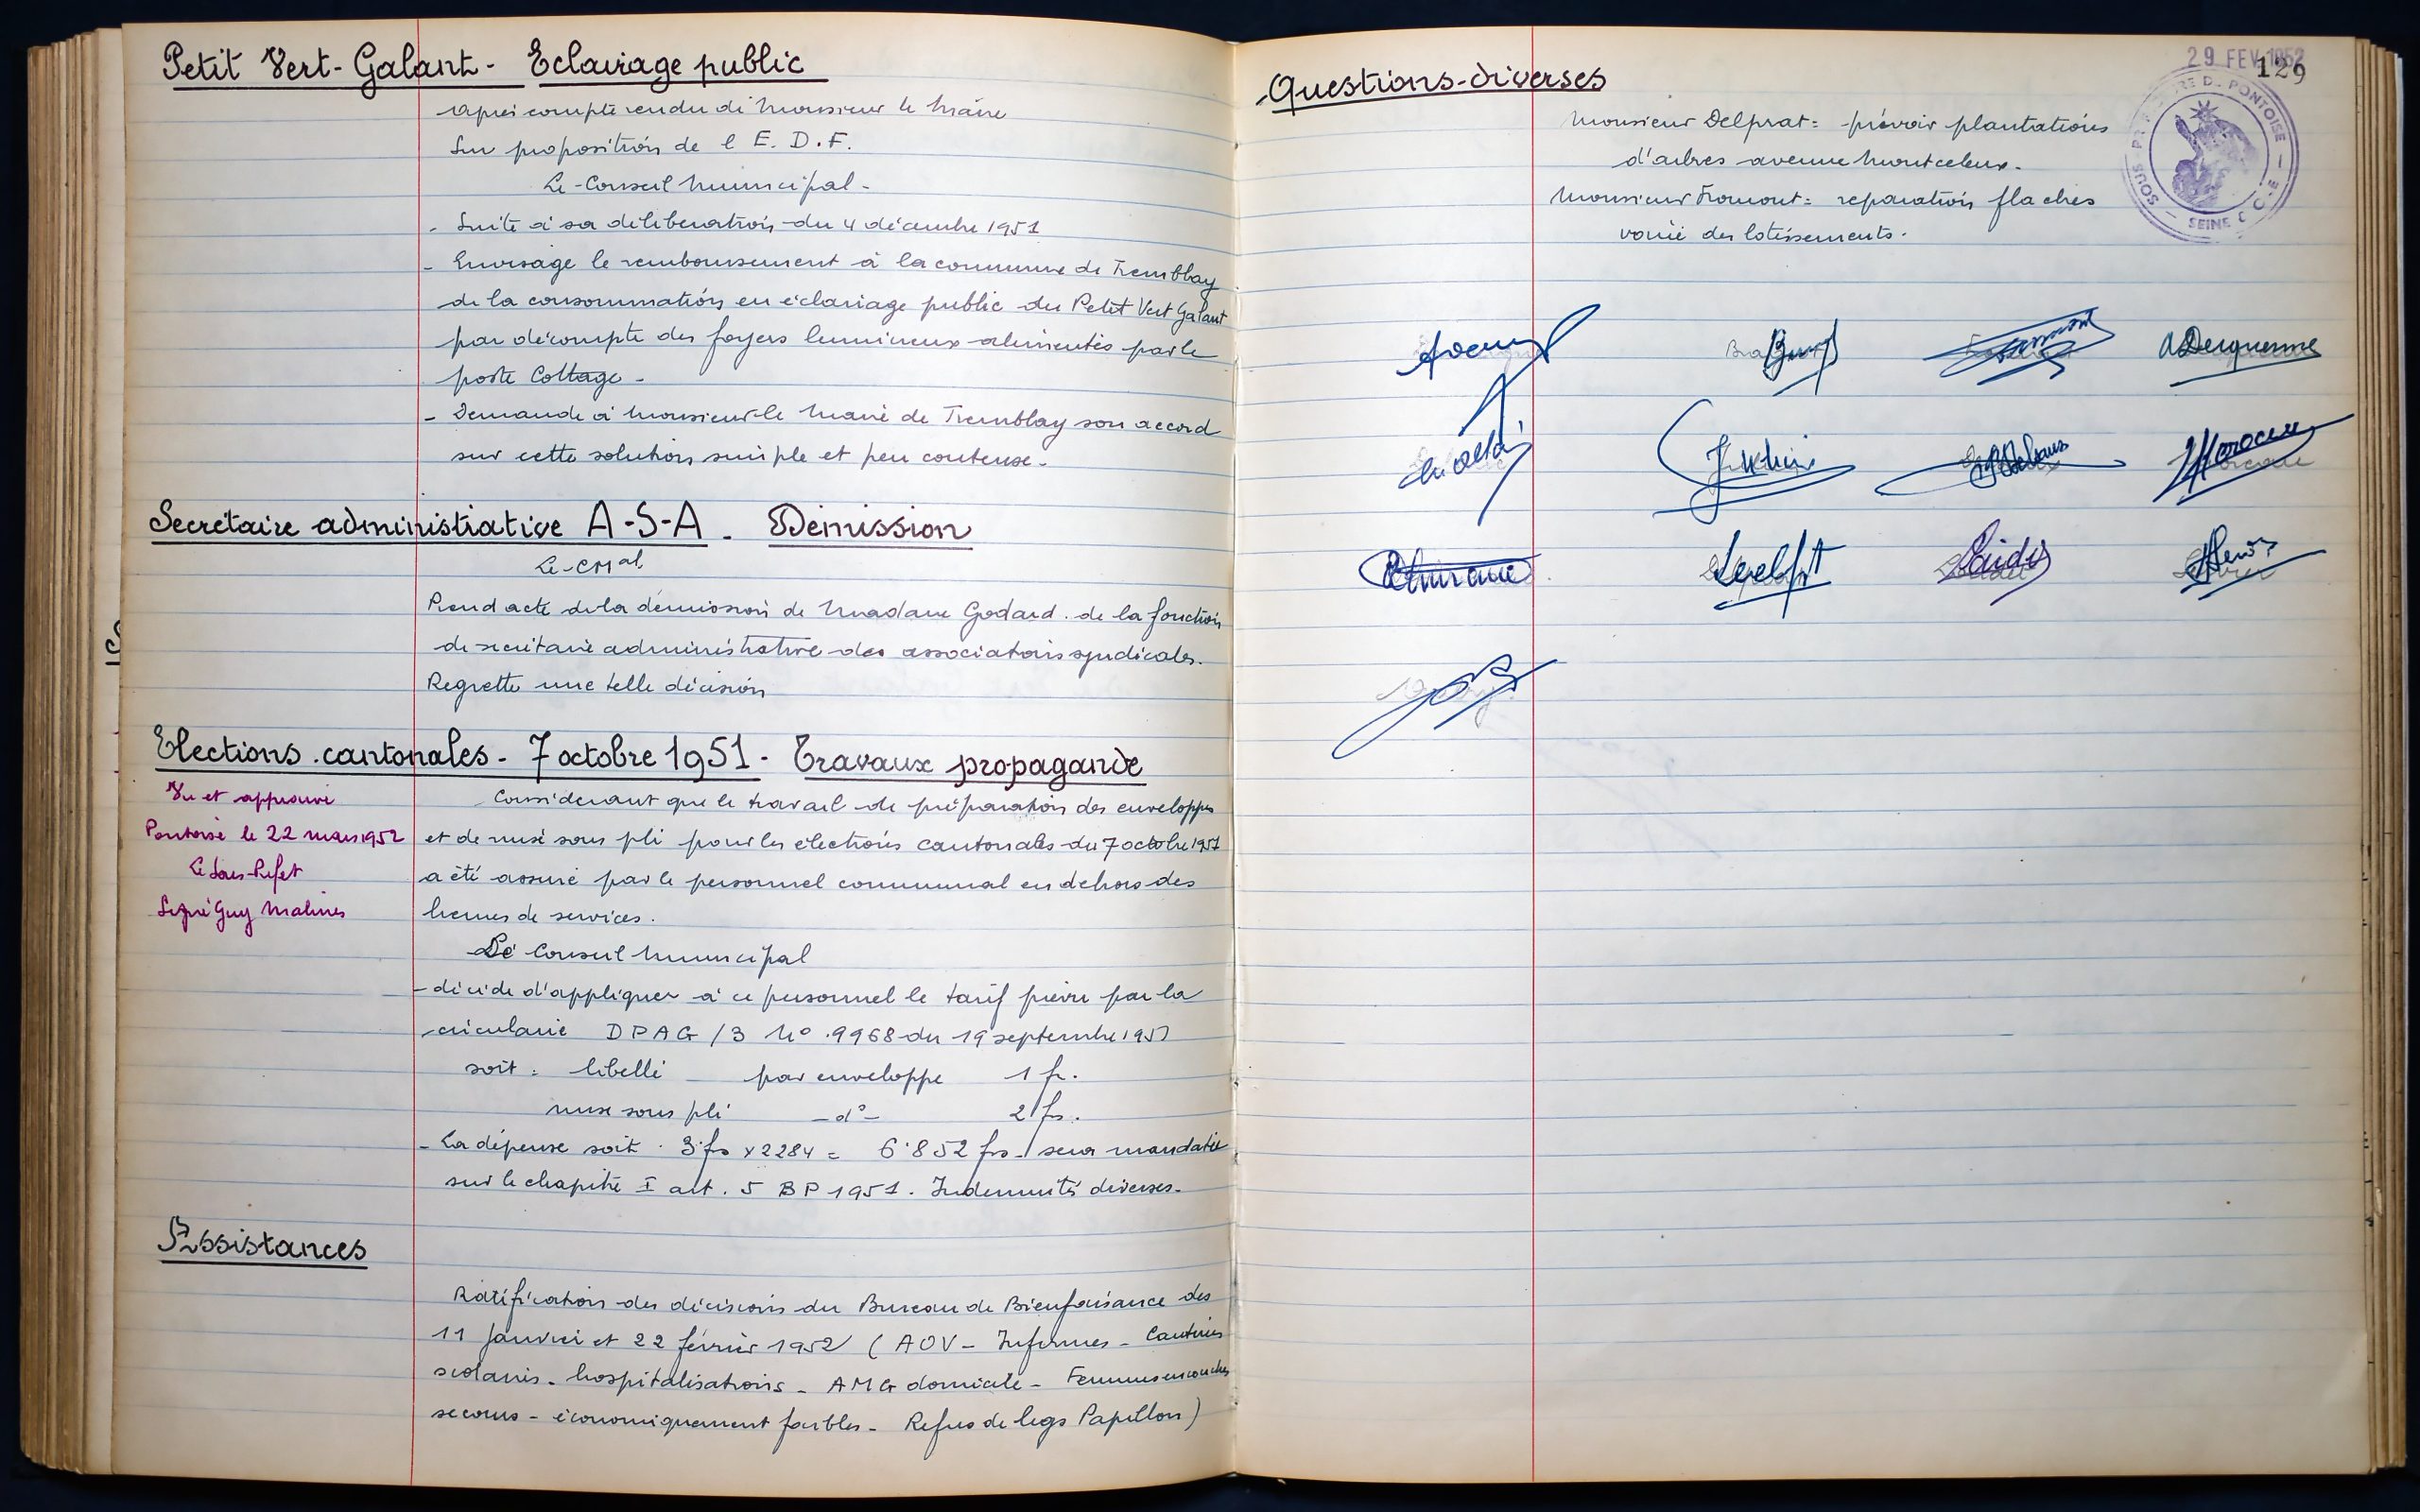 Petit Vert-Galant - Eclairage public
Après compte rendu de Monsieur le Maire
Sur proposition de l E. D. F.
Le Conseil Municipal -
- Suite à sa délibération du 4 décembre 1951
- Envisage le remboursement à la commune de Tremblay
de la consommation en éclairage public du Petit Vert Galant
par décompte des foyers lumineux alimentés par le
poste Cottage -
- Demande à Monsieur le Maire de Tremblay son accord
sur cette solution simple et peu couteuse -
Secrétaire administrative A-S-A - Démission
Le CMal
Prend acte de la démission de Madame Godard . de la fonction
de secrétaire administrative des associations syndicales.
Regrette une telle décision
Elections cantonales - 7 octobre 1951 - Travaux propagande
Vu et approuvé
Pontoise le 22 mars 1952
Le Sous-Préfet
Signé Guy Malines
Considérant que le travail de préparation des enveloppes
et de mise sous pli pour les élections cantonales du 7 octobre 1951
a été assuré par le personnel communal en dehors des
heures de services.
Le Conseil Municipal
- décide d'appliquer à ce personnel le tarif prévu par la
circulaire DPAG / 3 No 9968 du 19 septembre 1951
soit : libellé - par enveloppe 1 fr.
mise sous pli - do - 2 frs.
- La dépense soit 3 frs x 2284 = 6.852 frs - sera mandatée
sur le chapitre I art. 5 BP 1951. Indemnités diverses -
Assistances
Ratification des décisions du Bureau de Bienfaisance des
11 Janvier et 22 février 1952 ( AOV - Infirmes - Cantines
scolaires - hospitalisations - AMG domicile - Femmes en couches
secours - économiquement faibles - Refus de legs Papillon )
29 FEV 1952
129
SOUS PRÉFECTURE DE PONTOISE
SEINE & OISE
Questions diverses
Monsieur Delprat : prévoir plantations
d'arbres avenue Montceleux -
Monsieur Fromont : reparation flaches
voirie des lotissements .
ADerquenne